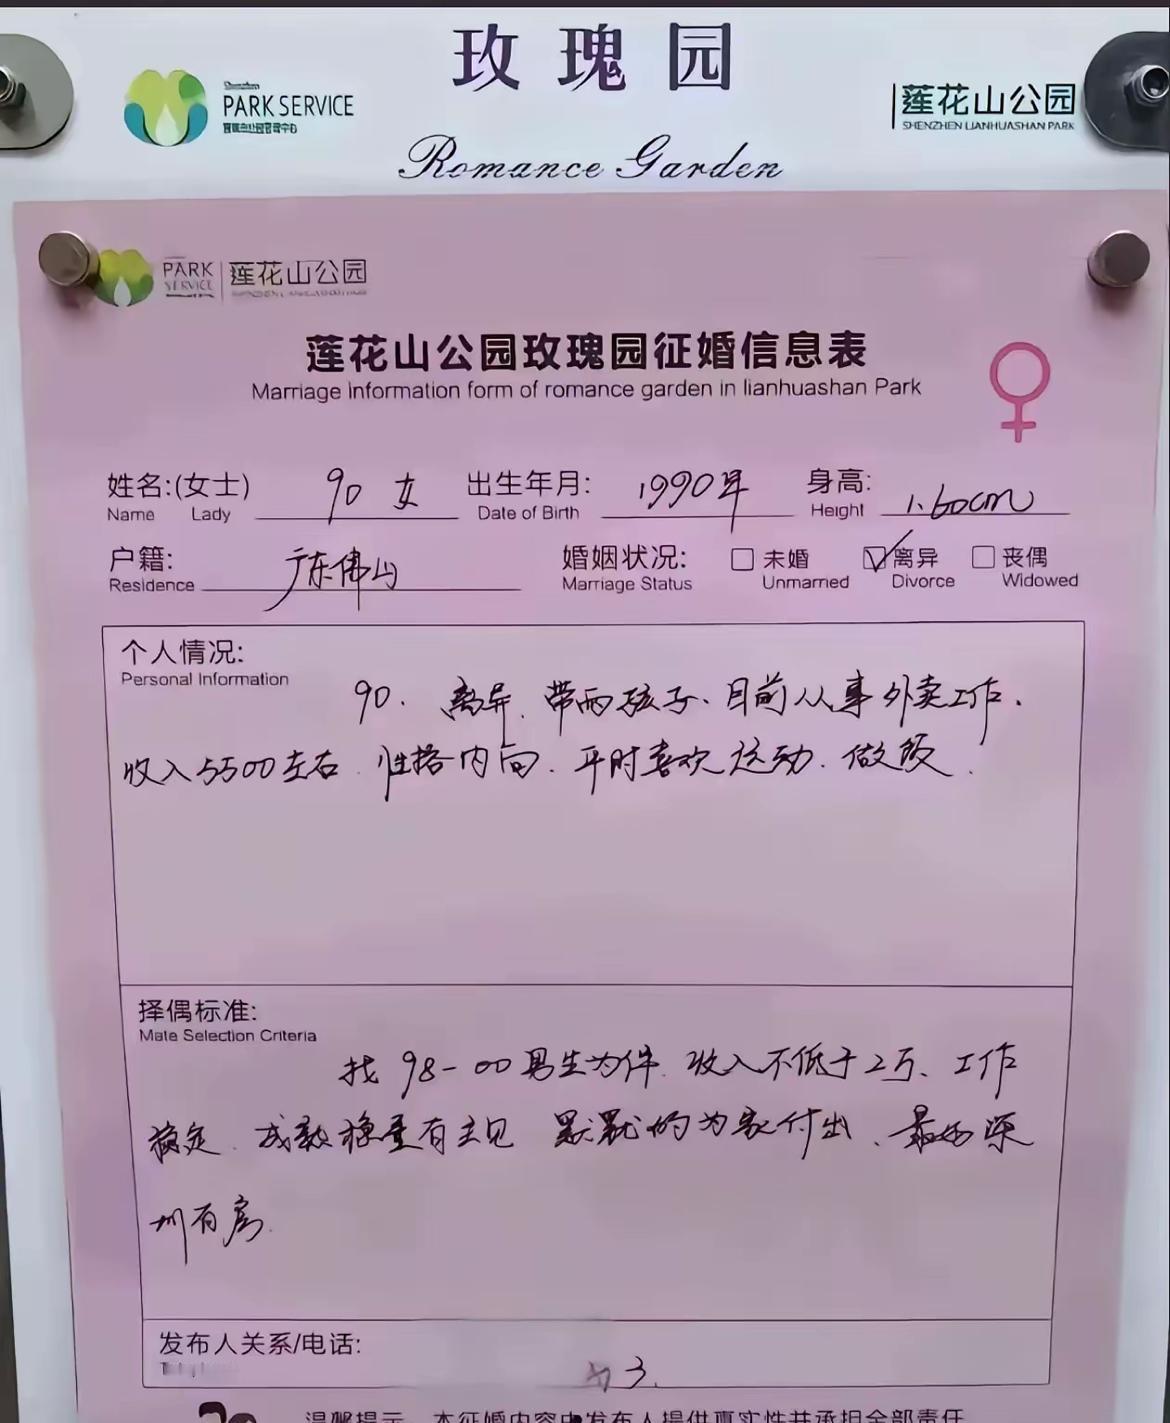 玫瑰园
PARK SERVICE
莲花山公园
SHENZHEN LIANHUASHAN PARK
Romance Garden
PARK SERVICE
莲花山公园
莲花山公园玫瑰园征婚信息表
Marriage Information form of romance garden in lianhuashan Park
姓名:(女士) 90 女 出生年月: 1990年 身高: 1.60cm
Name Lady Date of Birth Height
户籍: 广东佛山 婚姻状况: 未婚 离异 丧偶
Residence Marriage Status Unmarried Divorce Widowed
个人情况:
Personal Information
90. 离异、带两孩子、目前从事外卖工作.
收入5500左右. 性格内向. 平时喜欢运动. 做饭.
择偶标准:
Mate Selection Criteria
找98-00男生为伴. 收入不低于2万、工作
稳定. 成熟稳重有主见 默默的为家付出、最好深
圳有房.
发布人关系/电话:
3.
温馨提示 本征婚内容由发布人提供真实性并承担全部责任